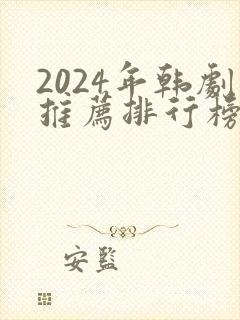 2024年韩劇
推薦排行榜
安監